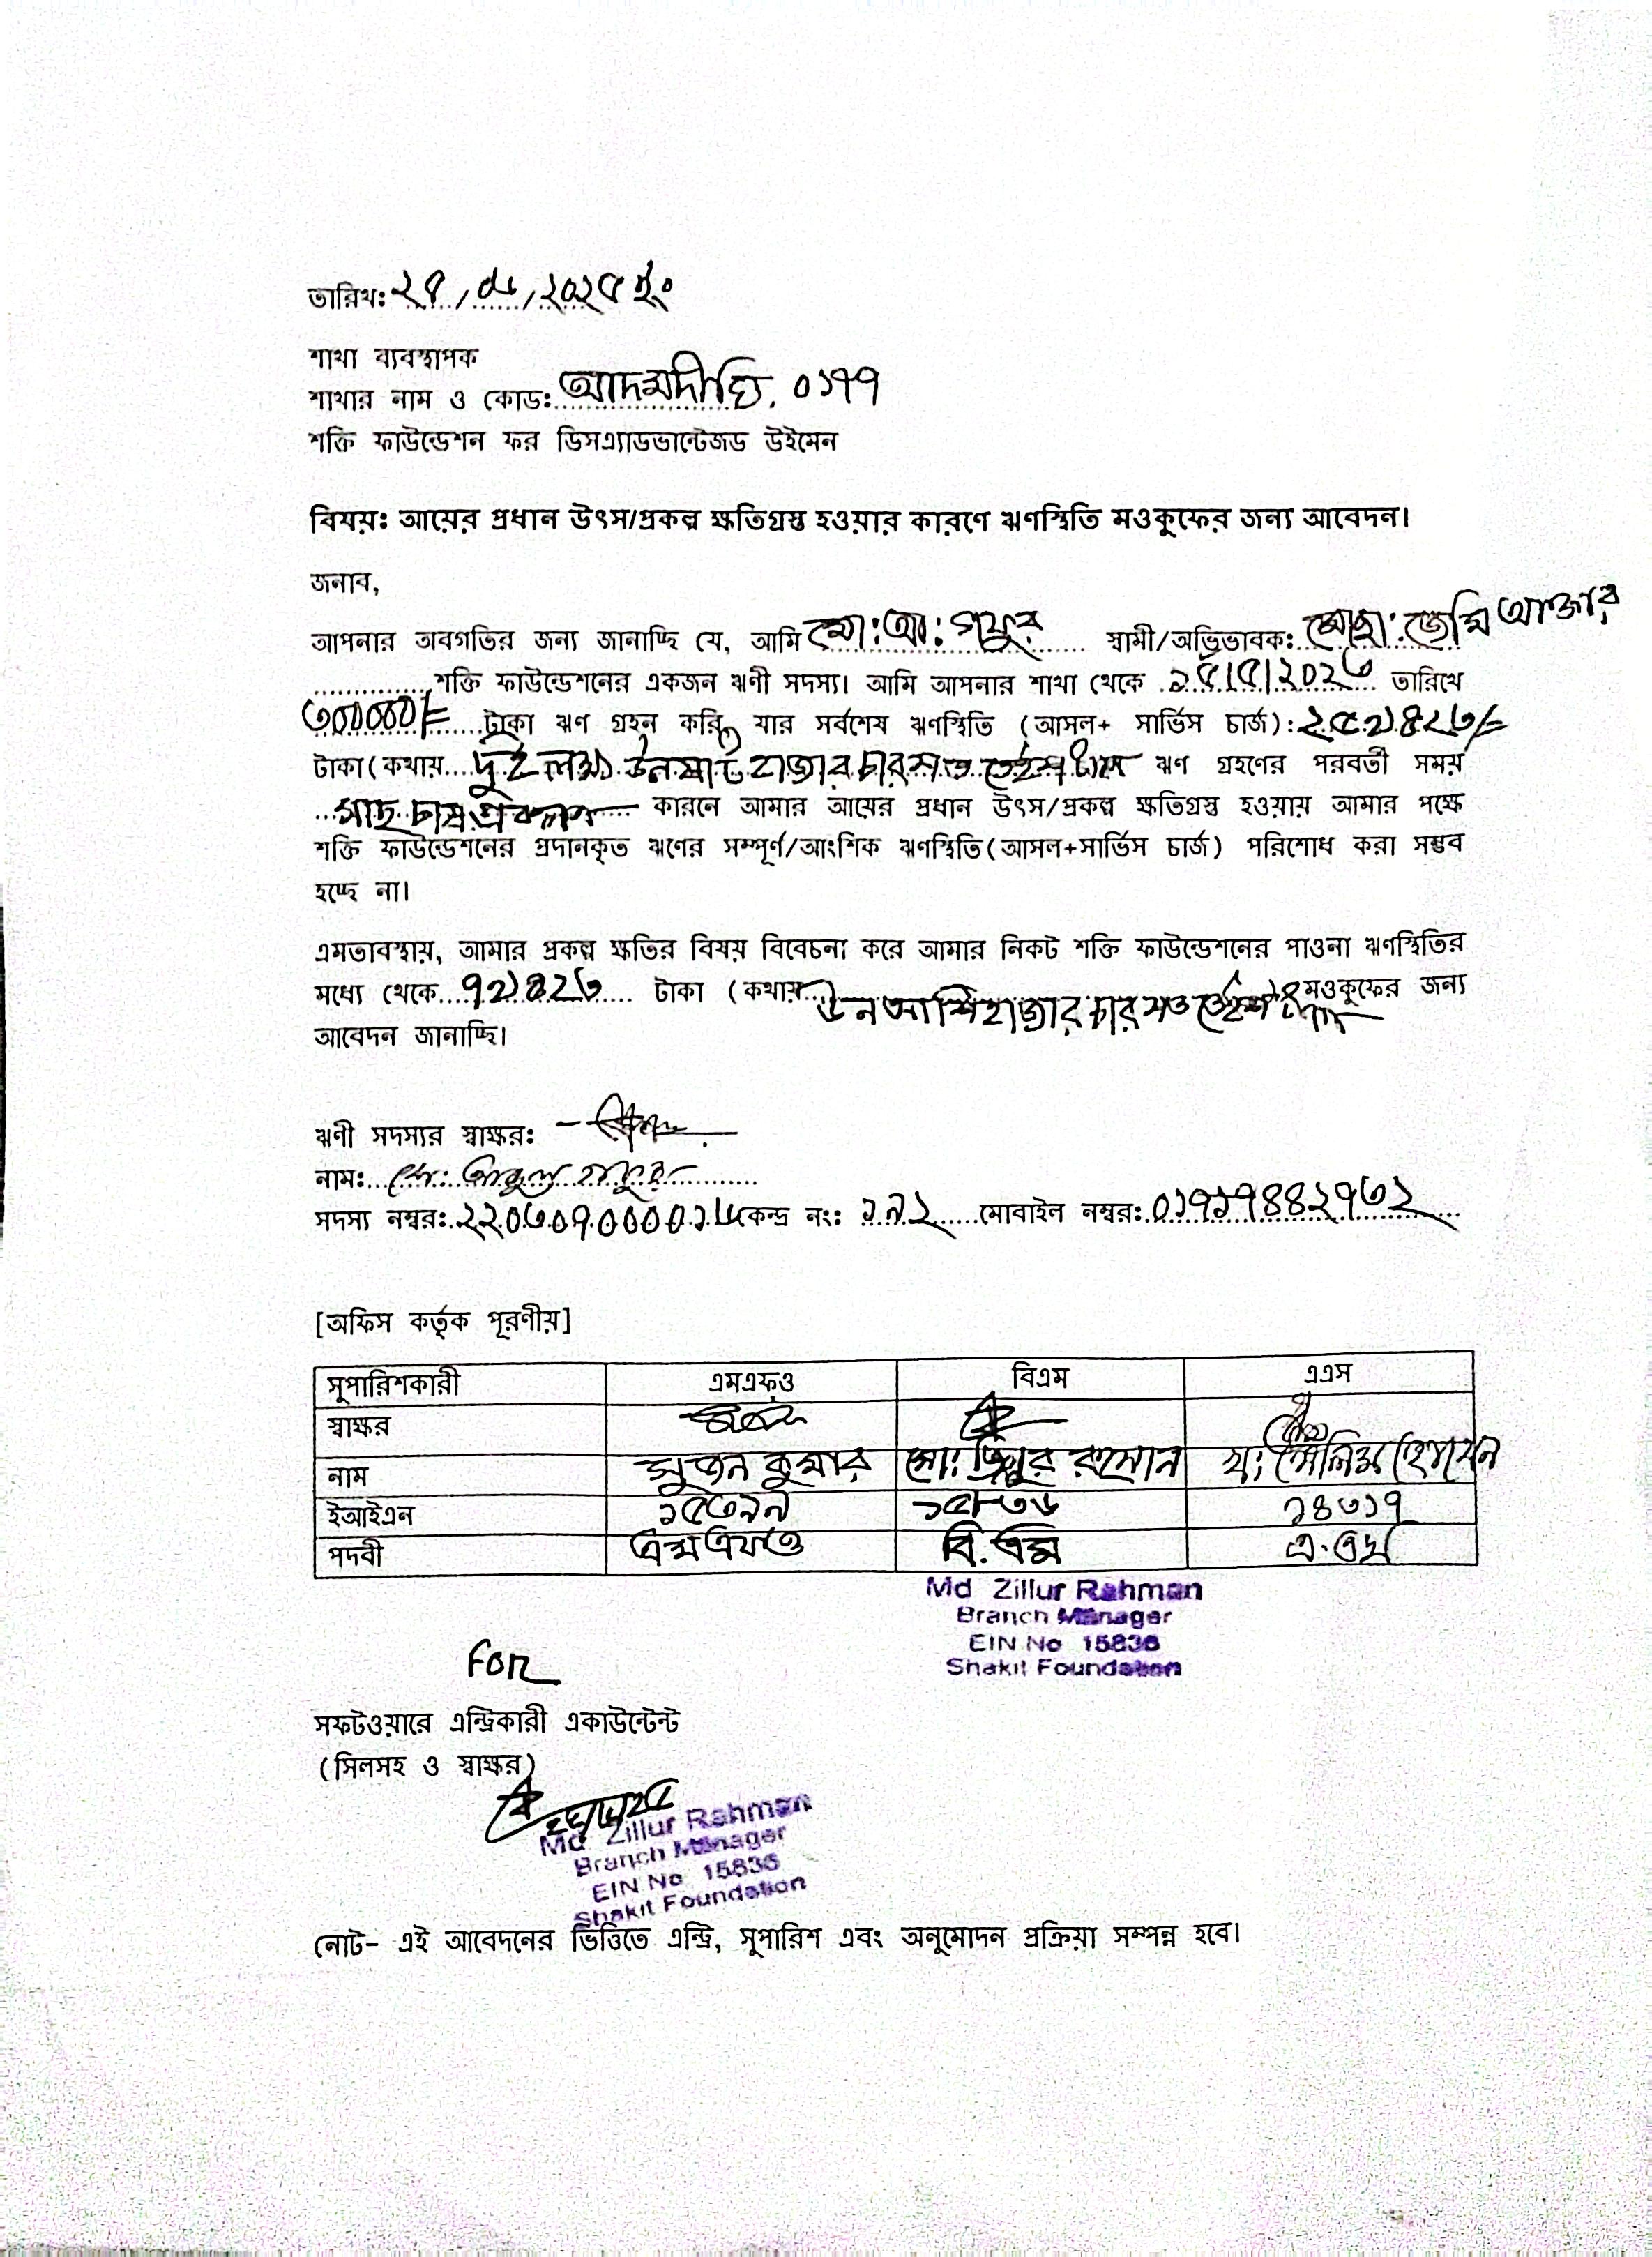 তারিখঃ ২৭/০৮/২০২৫ ইং
শাখা ব্যবস্থাপক
শাখার নাম ও কোডঃ আদমদীঘি. ০১৭৭
শক্তি ফাউন্ডেশন ফর ডিসএ্যাডভান্টেজড উইমেন
বিষয়ঃ আয়ের প্রধান উৎস/প্রকল্প ক্ষতিগ্রস্ত হওয়ার কারণে ঋণস্থিতি মওকুফের জন্য আবেদন।
জনাব,
আপনার অবগতির জন্য জানাচ্ছি যে, আমি মো: আ: গফুর স্বামী/অভিভাবক: মোছা: জেমি আক্তার
শক্তি ফাউন্ডেশনের একজন ঋণী সদস্য। আমি আপনার শাখা থেকে ১৫/৫/২০২৩ তারিখে
৩০০০০০/= টাকা ঋণ গ্রহন করি, যার সর্বশেষ ঋণস্থিতি (আসল+ সার্ভিস চার্জ): ২৫৯৪২৩/=
টাকা(কথায় দুই লক্ষ্য উনষাট হাজার চারশত তেইশ টাকা ঋণ গ্রহণের পরবর্তী সময়
মাছ চাষ প্রকল্প কারনে আমার আয়ের প্রধান উৎস/প্রকল্প ক্ষতিগ্রস্ত হওয়ায় আমার পক্ষে
শক্তি ফাউন্ডেশনের প্রদানকৃত ঋণের সম্পূর্ণ/আংশিক ঋণস্থিতি(আসল+সার্ভিস চার্জ) পরিশোধ করা সম্ভব
হচ্ছে না।
এমতাবস্থায়, আমার প্রকল্প ক্ষতির বিষয় বিবেচনা করে আমার নিকট শক্তি ফাউন্ডেশনের পাওনা ঋণস্থিতির
মধ্যে থেকে ৭৯৪২৩ টাকা (কথায় উনআশি হাজার চারশত তেইশ টাকা মওকুফের জন্য
আবেদন জানাচ্ছি।
ঋণী সদস্যর স্বাক্ষরঃ
নামঃ মো: আব্দুল গফুর
সদস্য নম্বরঃ ২২০৩০৭০০০০১৮ কেন্দ্র নংঃ ১৯২ মোবাইল নম্বরঃ ০১৭১৭৪৪২৭৩২
[অফিস কর্তৃক পূরণীয়]
সুপারিশকারী এমএফও বিএম এএস
স্বাক্ষর
নাম সুজন কুমার মো: জিল্লুর রহমান মো: সেলিম হোসেন
ইআইএন ১৫৩৯৯ ১৫৮৩৬ ১৪৩১৭
পদবী এম এফও বি. এম এ. এস
Md Zillur Rahman
Branch Manager
EIN No 15836
Shakti Foundation
For
সফটওয়ারে এন্ট্রিকারী একাউন্টেন্ট
(সিলসহ ও স্বাক্ষর)
Md Zillur Rahman
Branch Manager
EIN No 15836
Shakti Foundation
নোট- এই আবেদনের ভিত্তিতে এন্ট্রি, সুপারিশ এবং অনুমোদন প্রক্রিয়া সম্পন্ন হবে।